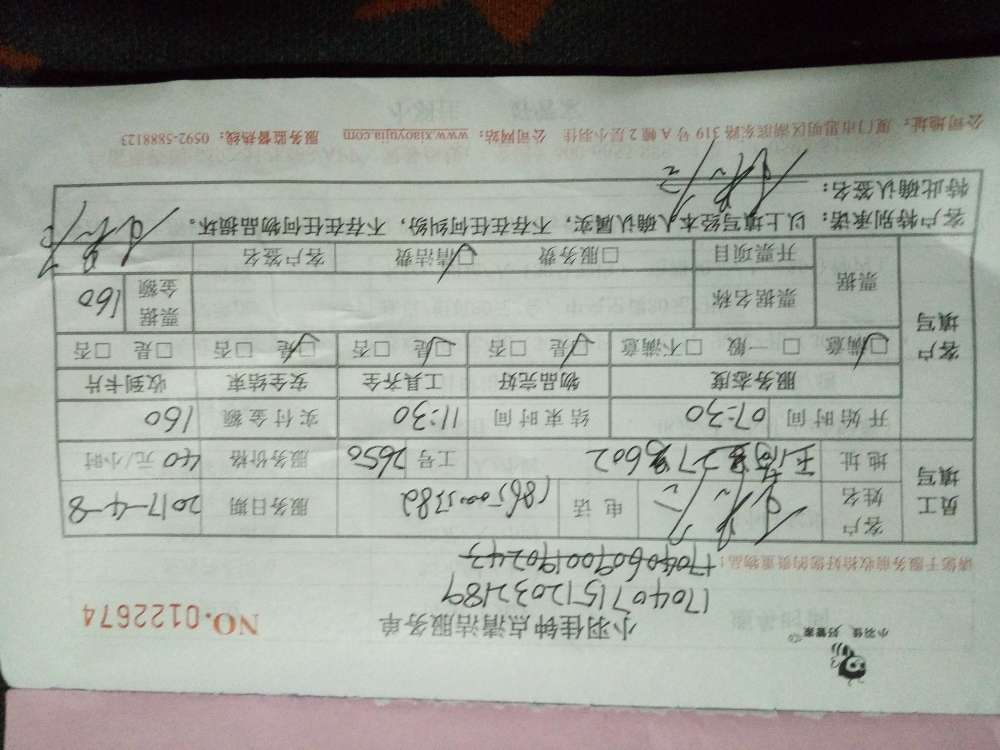 小羽佳 好管家
小羽佳钟点清洁服务单 NO.0122674
1704071512032189
1704060900190243
请您于服务前收拾好您的贵重物品：
员工填写 客户姓名 电话 服务日期 2017-4-8
地址 602 工号 2650 服务价格 40 元/小时
开始时间 07:30 结束时间 11:30 实付金额 160
客户填写 服务态度 物品完好 工具齐全 安全结束 收到卡片
☑满意 □一般 □不满意 ☑是 □否 ☑是 □否 ☑是 □否 □是 □否
票据 票据名称 票据金额 160
开票项目 □服务费 ☑清洁费 客户签名
客户特别承诺：以上填写经本人确认属实，不存在任何纠纷，不存在任何物品损坏。
特此确认签名：
公司地址：厦门市思明区湖滨东路 319 号 A 幢 2 层小羽佳 公司网站：www.xiaoyujia.com 服务监督热线：0592-5888123